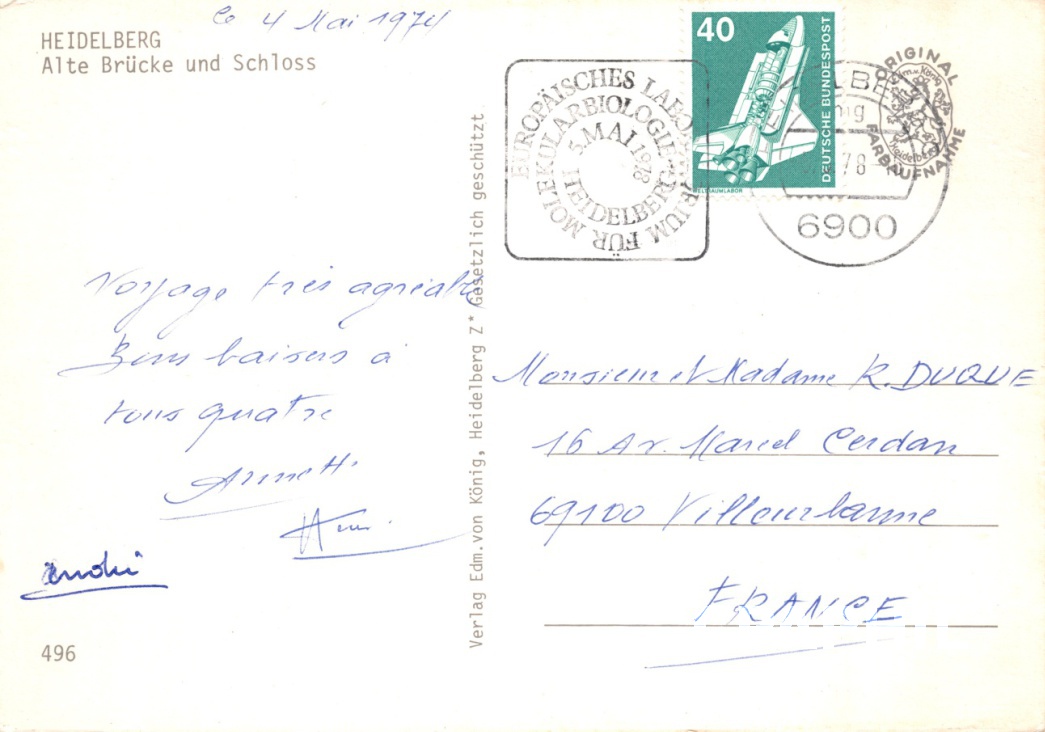 le 4 Mai 197
HEIDELBERG
Alte Brücke und Schloss
Voyage très agréable
Bons baisers à
tous quatre
Annette
André
496
Verlag Edm.von König, Heidelberg Z* Gesetzlich geschützt
EUROPÄISCHES LABORATORIUM FÜR MOLEKULARBIOLOGIE
5.MAI 1978
HEIDELBERG
40
DEUTSCHE BUNDESPOST
WELTRAUMLABOR
78
6900
ORIGINAL
FARBAUFNAHME
Edm.v.König
Heidelberg
Monsieur et Madame R. DUQUE
16 Av. Marcel Cerdan
69100 Villeurbanne
FRANCE